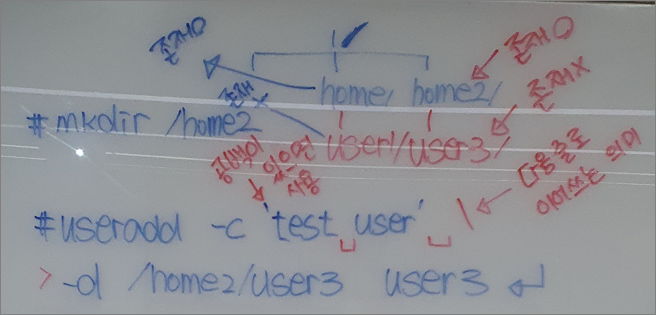 /
존재O
존재O
home/ home2/
존재X
존재X
#mkdir /home2
user1/user3/
공백이 있으면 사용
다음줄로 이어쓰는 의미
#useradd -c 'test user' \
> -d /home2/user3 user3 ↵